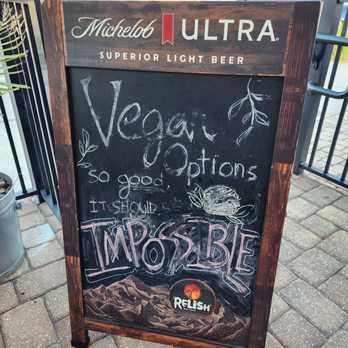 Michelob ULTRA
SUPERIOR LIGHT BEER
Vegan
Options
so good,
IT SHOULD BE
IMPOSSIBLE
RELISH